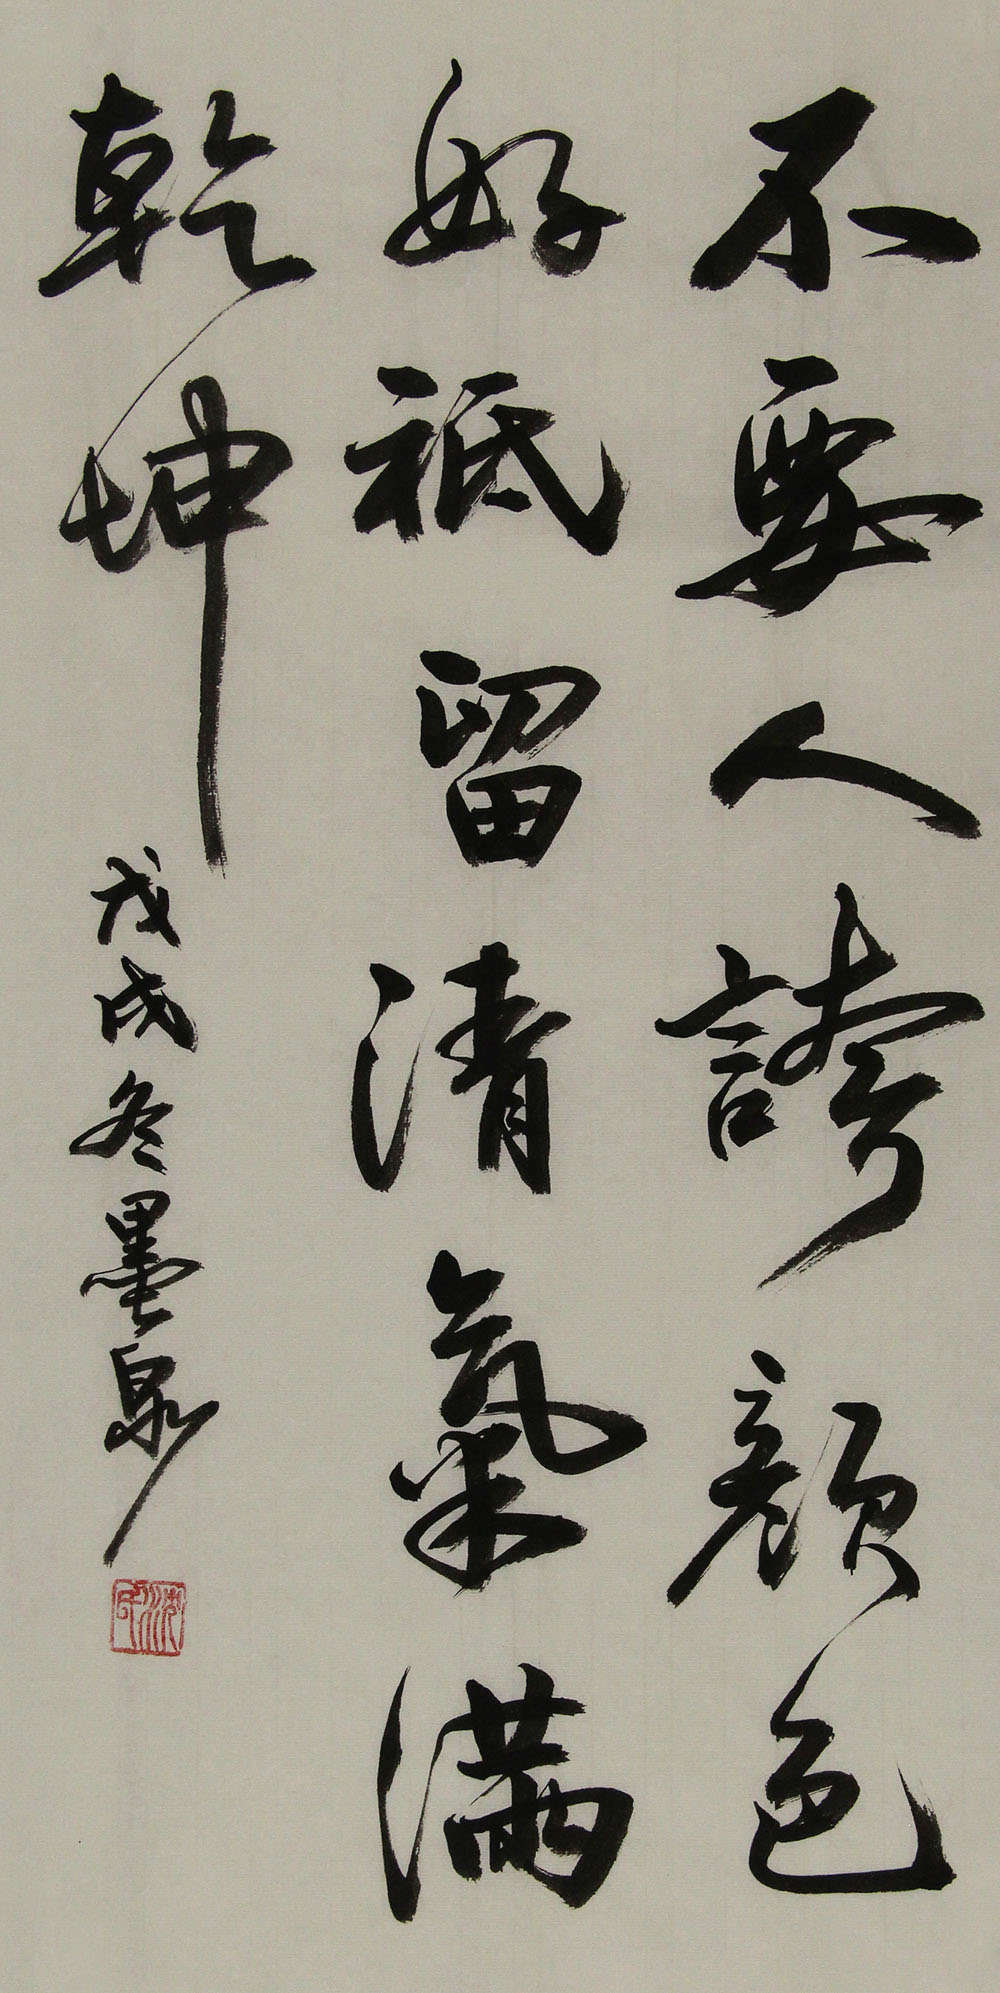 不要人誇顏色
好祗留清氣滿
乾坤
戊戌冬墨泉